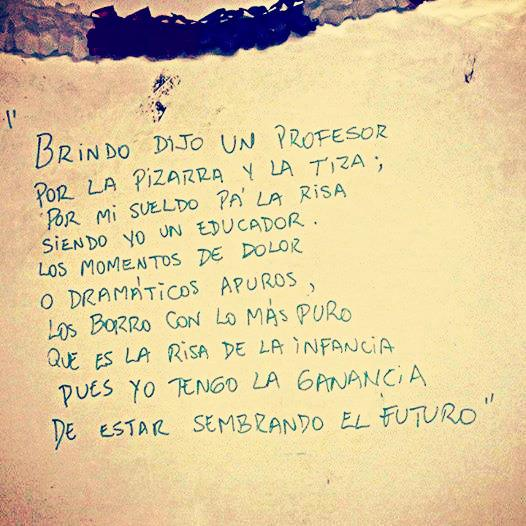 " BRINDO DIJO UN PROFESOR
POR LA PIZARRA Y LA TIZA;
POR MI SUELDO PA' LA RISA
SIENDO YO UN EDUCADOR.
LOS MOMENTOS DE DOLOR
O DRAMÁTICOS APUROS,
LOS BORRO CON LO MÁS PURO
QUE ES LA RISA DE LA INFANCIA
PUES YO TENGO LA GANANCIA
DE ESTAR SEMBRANDO EL FUTURO"